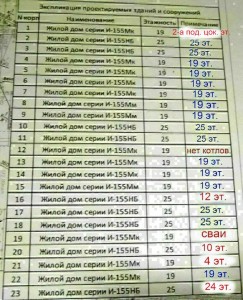 Экспликация проектируемых зданий и сооружений
N норт Наименование Этажность Примечание
1 Жилой дом серии И-155Мк 19 2-а под. цок. эт.
2 Жилой дом серии И-155НБ 25 25 эт.
3 Жилой дом серии И-155НБ 25 25 эт.
4 Жилой дом серии И-155Мк 19 19 эт.
5 Жилой дом серии И-155Мк 19 19 эт.
6 Жилой дом серии И-155Мк 19 19 эт.
7 Жилой дом серии И-155Мк 19 19 эт.
8 Жилой дом серии И-155Мк 19 19 эт.
9 Жилой дом серии И-155Мк 19 19 эт.
10 Жилой дом серии И-155НБ 25 25 эт.
11 Жилой дом серии И-155НБ 25 25 эт.
12 Жилой дом серии И-155Мм 19 нет котлов.
13 Жилой дом серии И-155Мк 19 19 эт.
14 Жилой дом серии И-155Мк 19 19 эт.
15 Жилой дом серии И-155Мк 19 19 эт.
16 Жилой дом серии И-155НБ 25 12 эт.
17 Жилой дом серии И-155НБ 25 25 эт.
18 Жилой дом серии И-155НБ 25 25 эт.
19 Жилой дом серии И-155Мк 19 сваи
20 Жилой дом серии И-155НБ 25 10 эт.
21 Жилой дом серии И-155Мм 19 4 эт.
22 Жилой дом серии И-155Мм 19 19 эт.
23 Жилой дом серии И-155НБ 25 24 эт.